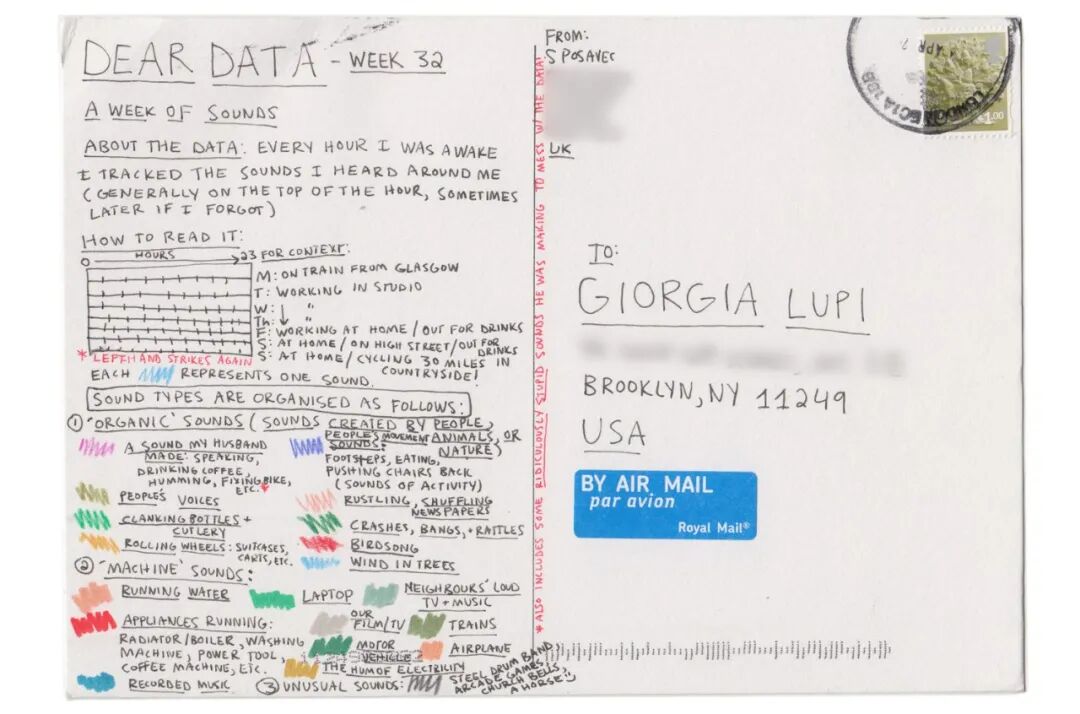 DEAR DATA - WEEK 32
A WEEK OF SOUNDS
ABOUT THE DATA: EVERY HOUR I WAS AWAKE
I TRACKED THE SOUNDS I HEARD AROUND ME
(GENERALLY ON THE TOP OF THE HOUR, SOMETIMES
LATER IF I FORGOT)
HOW TO READ IT:
0 HOURS 23
FOR CONTEXT:
M: ON TRAIN FROM GLASGOW
T: WORKING IN STUDIO
W: ↓ "
Th: ↓ "
F: WORKING AT HOME / OUT FOR DRINKS
S: AT HOME / ON HIGH STREET / OUT FOR DRINKS
S: AT HOME / CYCLING 30 MILES IN COUNTRYSIDE!
* LEFTHAND STRIKES AGAIN
EACH REPRESENTS ONE SOUND.
SOUND TYPES ARE ORGANISED AS FOLLOWS:
① 'ORGANIC' SOUNDS (SOUNDS CREATED BY PEOPLE, ANIMALS, OR NATURE)
A SOUND MY HUSBAND
MADE: SPEAKING,
DRINKING COFFEE,
HUMMING, FIXING BIKE,
ETC. *
PEOPLE'S MOVEMENT
SOUNDS:
FOOTSTEPS, EATING,
PUSHING CHAIRS BACK
(SOUNDS OF ACTIVITY)
PEOPLE'S VOICES
RUSTLING, SHUFFLING
NEWSPAPERS
CLANKING BOTTLES +
CUTLERY
CRASHES, BANGS, + RATTLES
ROLLING WHEELS: SUITCASES,
CARTS, ETC.
BIRDSONG
WIND IN TREES
② 'MACHINE' SOUNDS:
RUNNING WATER
LAPTOP
NEIGHBOURS' LOUD
TV + MUSIC
APPLIANCES RUNNING:
RADIATOR/BOILER, WASHING
MACHINE, POWER TOOL,
COFFEE MACHINE, ETC.
OUR
FILM/TV
TRAINS
MOTOR
VEHICLE
AIRPLANE
THE HUM OF ELECTRICITY
RECORDED MUSIC
③ UNUSUAL SOUNDS:
STEEL DRUM BAND,
ARCADE GAMES,
CHURCH BELLS,
A HORSE!
* ALSO INCLUDES SOME RIDICULOUSLY STUPID SOUNDS HE WAS MAKING TO MESS W/ THE DATA!
FROM:
S POSAVEC
UK
TO:
GIORGIA LUPI
BROOKLYN, NY 11249
USA
BY AIR MAIL
par avion
Royal Mail®
LONDON EC1A 1BB
APR
£1.00